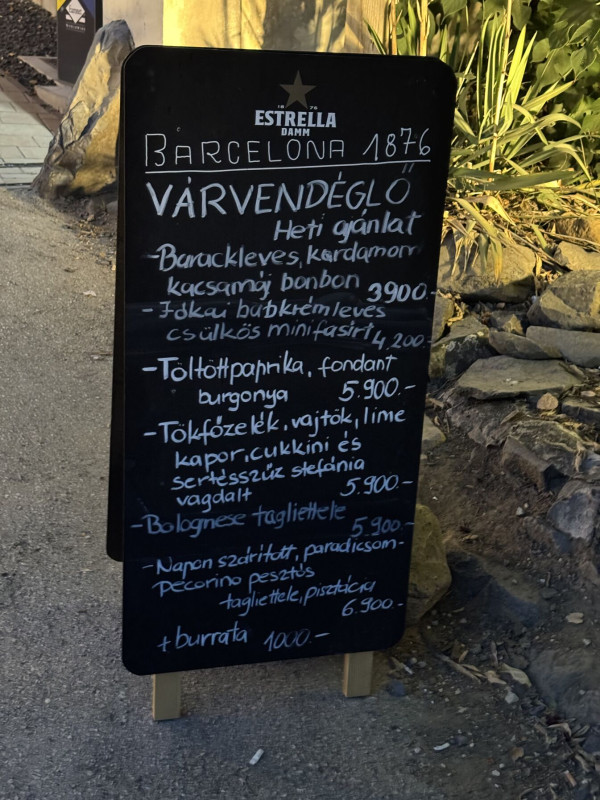 18 76
ESTRELLA
DAMM
BARCELONA 1876
VÁRVENDÉGLŐ
Heti ajánlat
-Barackleves, kardamom
kacsamáj bonbon 3900.-
-Jókai babkrémleves
csülkös minifasírt 4,200.-
-Töltöttpaprika, fondant
burgonya 5.900.-
-Tökfőzelék, vajtök, lime
kapor, cukkini és
sertésszűz stefánia
vagdalt 5.900.-
-Bolognese tagliettele
5.900.-
-Napon szárított, paradicsom-
Pecorino pesztós
tagliettele, pisztácia
6.900.-
+burrata 1000.-